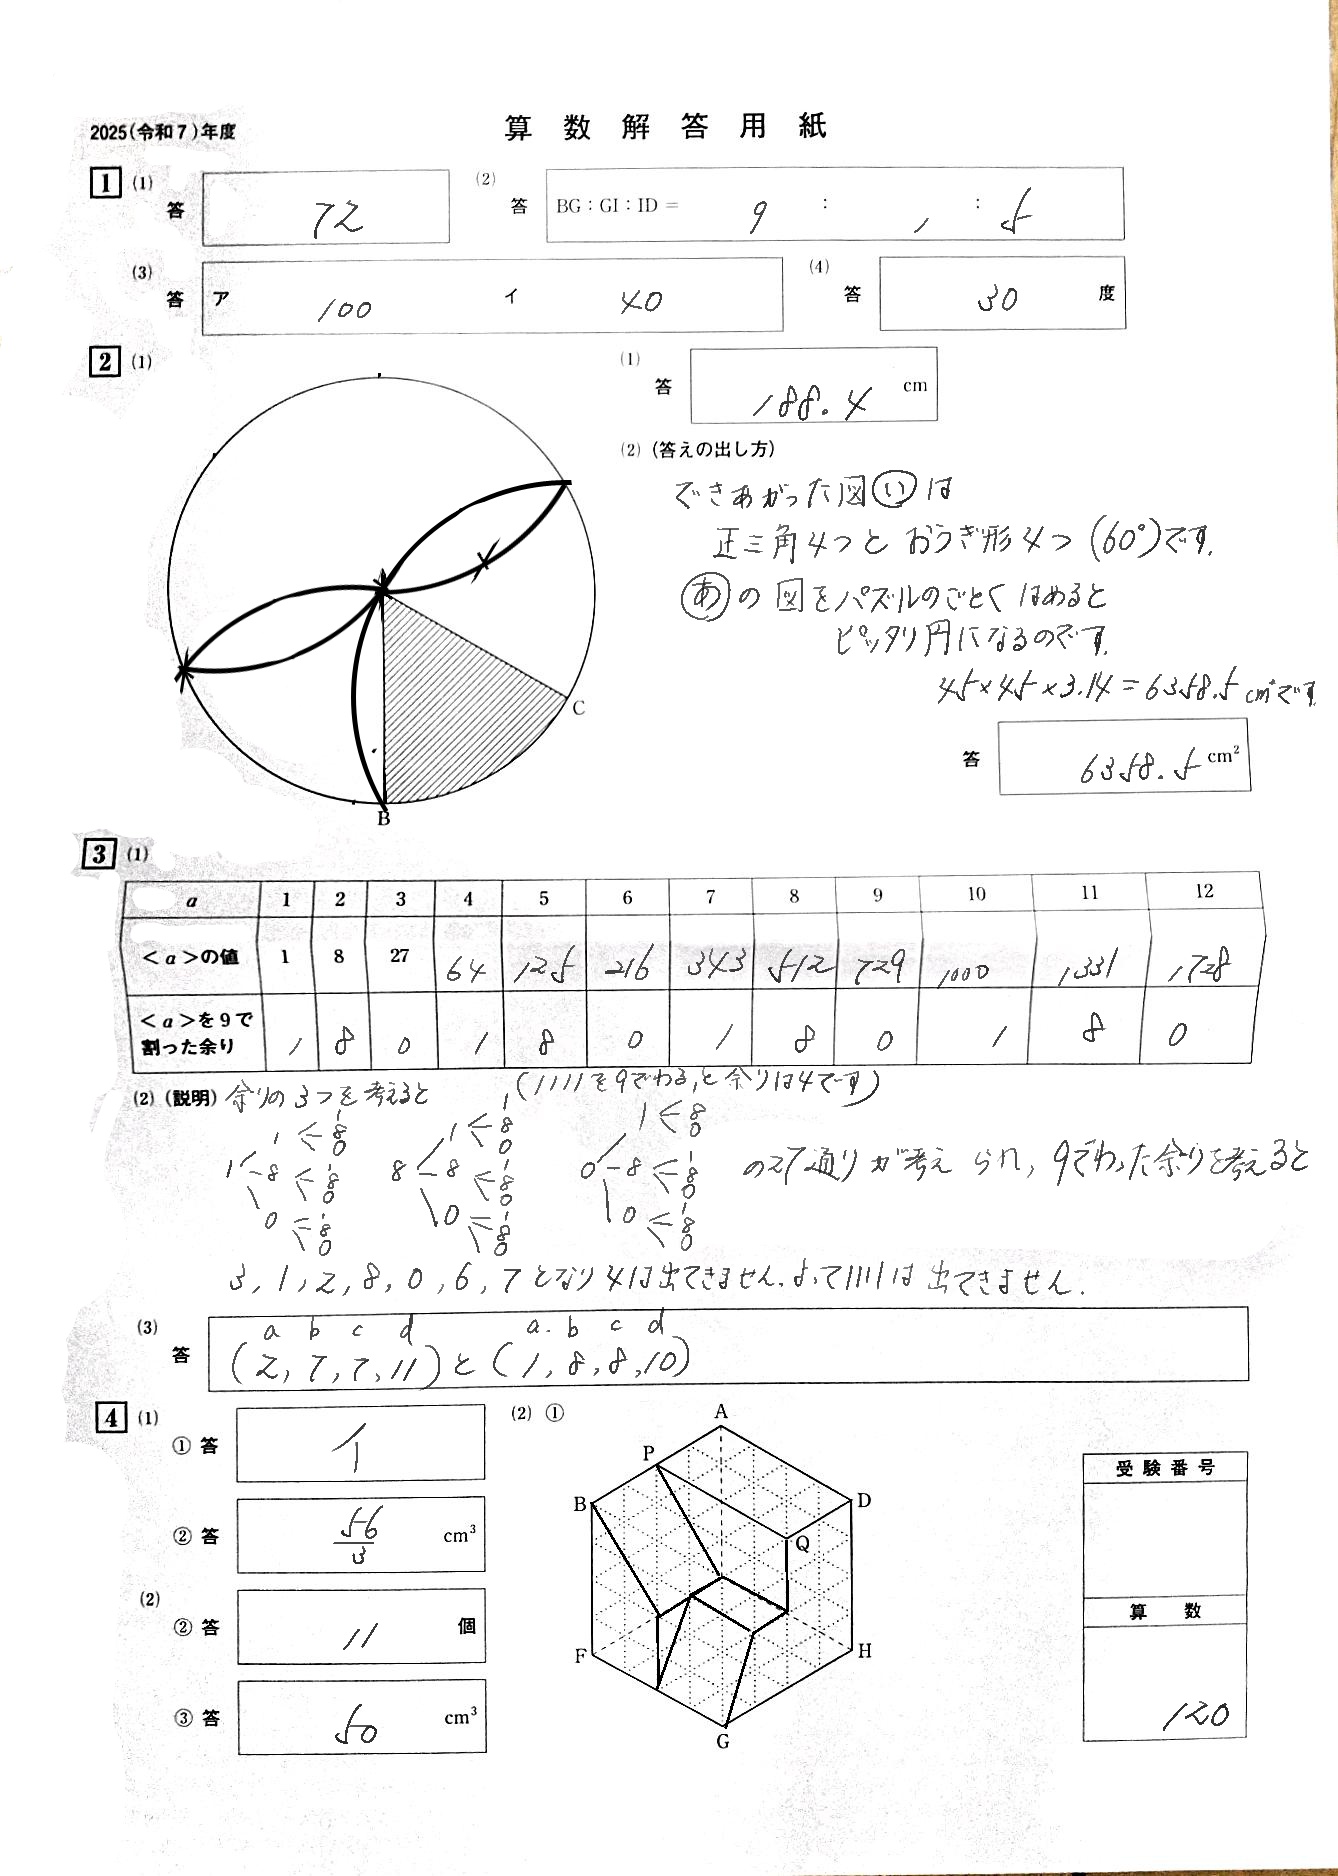 2025(令和7)年度
算数解答用紙
1 (1) 答 72
(2) 答 BG:GI:ID= 9 : 1 : 5
(3) 答 ア 100 イ 40
(4) 答 30 度
2 (1)
B
C
(1) 答 188.4 cm
(2) (答えの出し方)
できあがった図(い)は
正三角4つとおうぎ形4つ(60°)です.
(あ)の図をパズルのごとくはめると
ピッタリ円になるのです.
45×45×3.14=6358.5cm²です
答 6358.5 cm²
3 (1)
a 1 2 3 4 5 6 7 8 9 10 11 12
<a>の値 1 8 27 64 125 216 343 512 729 1000 1331 1728
<a>を9で割った余り 1 8 0 1 8 0 1 8 0 1 8 0
(2) (説明) 余りの3つを考えると (1111を9でわると余りは4です)
1 1 1 8 0
8 1 8 0
0 1 8 0
8 1 1 8 0
8 1 8 0
0 1 8 0
0 1 8 0
8 1 8 0
0 1 8 0
の27通りが考えられ,9でわった余りを考えると
3,1,2,8,0,6,7となり4は出てきません.よって1111は出てきません.
(3) 答 a b c d a. b c d
(2,7,7,11)と(1,8,8,10)
4 (1)
① 答 イ
② 答 56/3 cm³
(2)
② 答 11 個
③ 答 50 cm³
(2) ①
A
P
B
D
Q
F
H
G
受験番号
算数
120